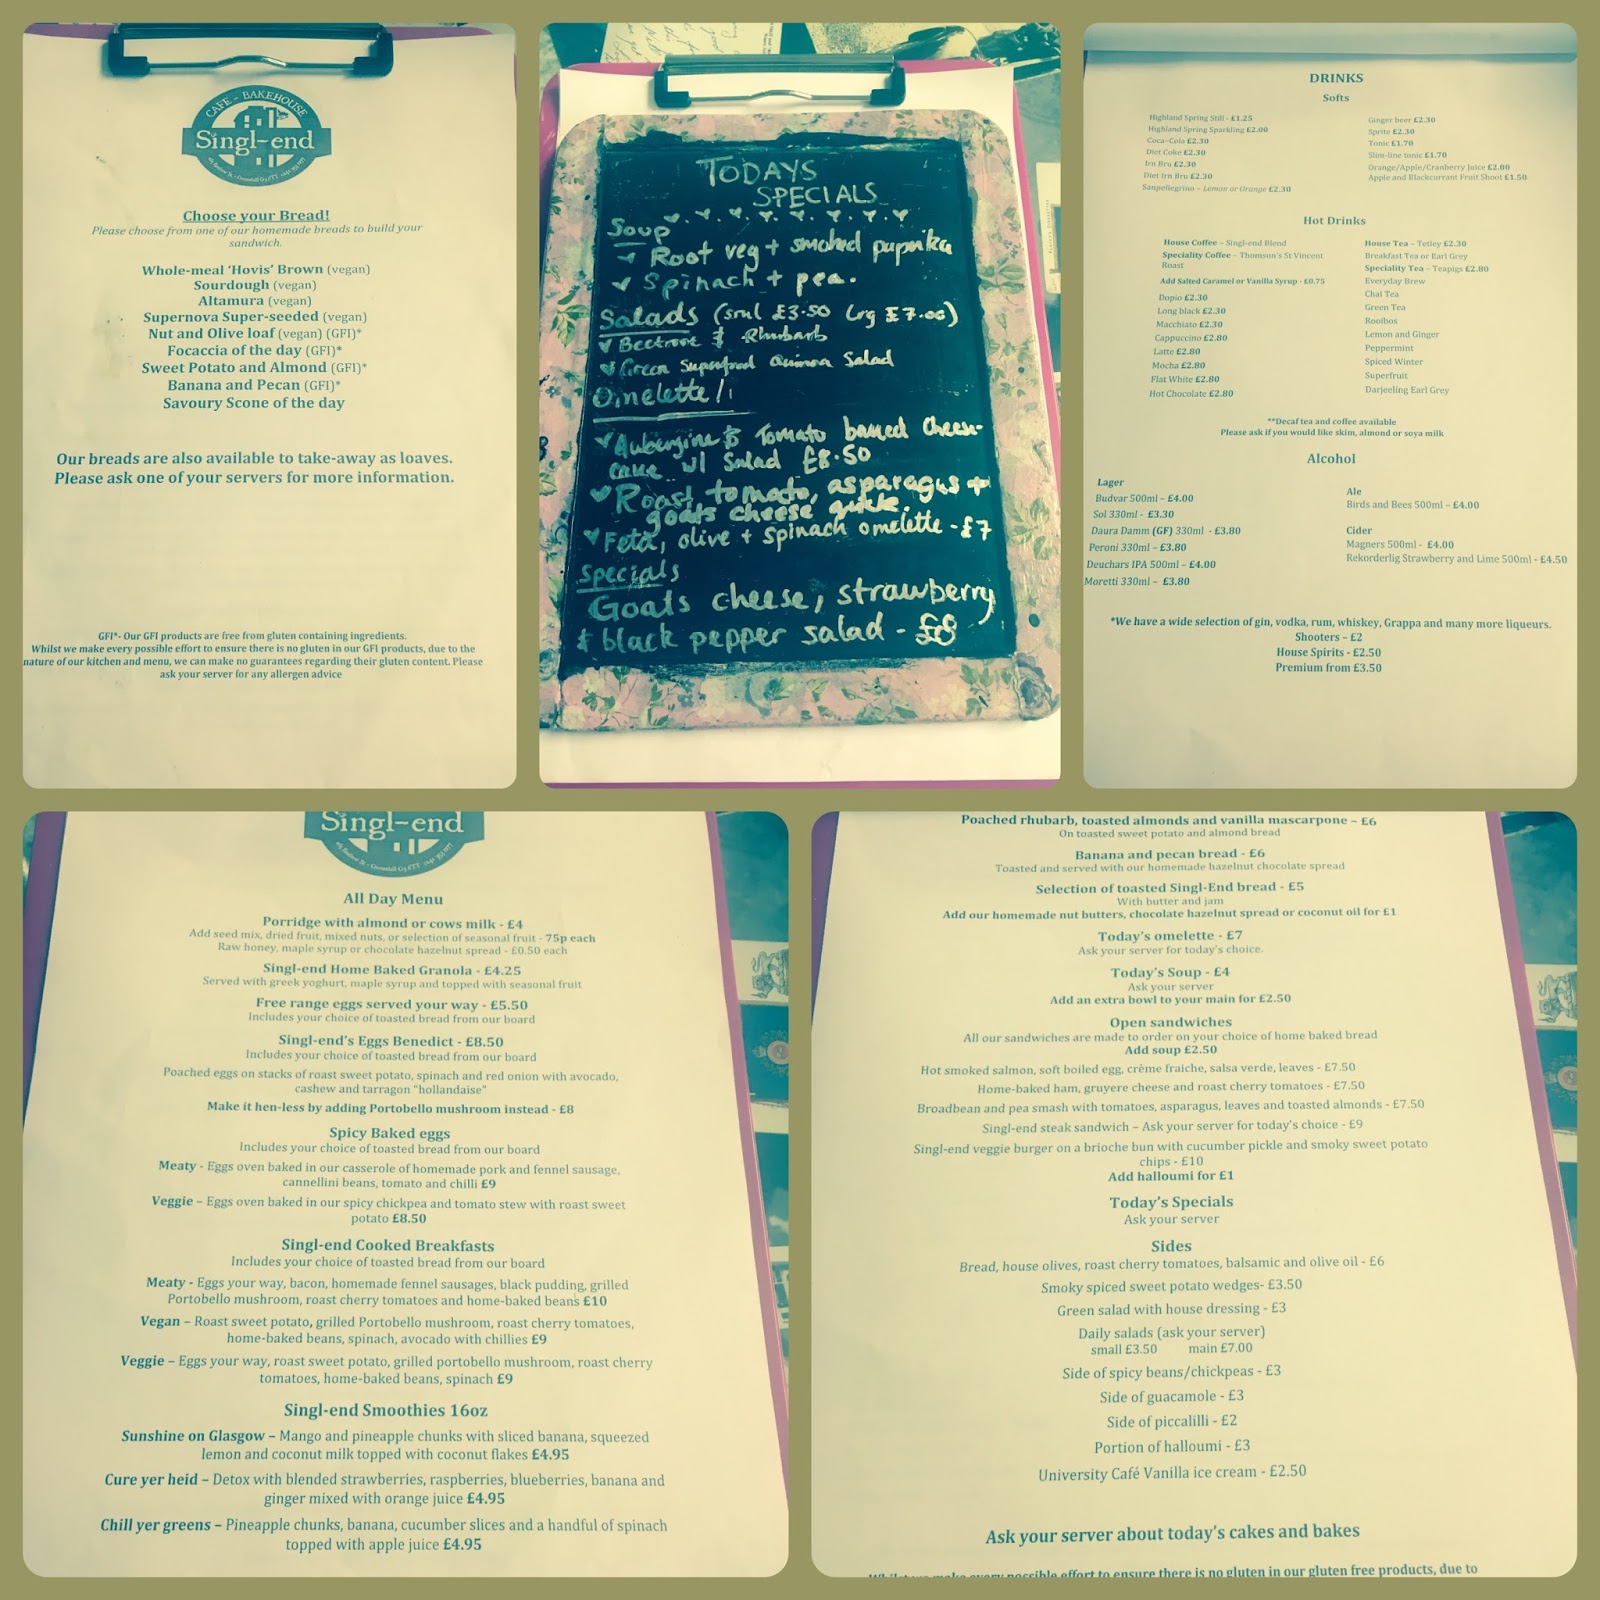 CAFE - BAKEHOUSE
Singl-end
Choose your Bread!
Please choose from one of our homemade breads to build your
sandwich.
Whole-meal ‘Hovis’ Brown (vegan)
Sourdough (vegan)
Altamura (vegan)
Supernova Super-seeded (vegan)
Nut and Olive loaf (vegan) (GFI)*
Focaccia of the day (GFI)*
Sweet Potato and Almond (GFI)*
Banana and Pecan (GFI)*
Savoury Scone of the day
Our breads are also available to take-away as loaves.
Please ask one of your servers for more information.
GFI*- Our GFI products are free from gluten containing ingredients.
Whilst we make every possible effort to ensure there is no gluten in our GFI products, due to the
nature of our kitchen and menu, we can make no guarantees regarding their gluten content. Please
ask your server for any allergen advice
TODAYS
SPECIALS
Soup
Root veg + smoked paprika
Spinach + pea.
Salads (sml £3.50 Lrg £7.00)
Beetroot & Rhubarb
Green Superfood Quinoa Salad
Omelette/
Aubergine & Tomato baked cheese-
cake w/ Salad £8.50
Roast tomato, asparagus +
goats cheese
Feta, olive + spinach omelette - £7
Specials
Goats cheese, strawberry
& black pepper salad - £8
DRINKS
Softs
Highland Spring Still - £1.25
Highland Spring Sparkling £2.00
Coca-Cola £2.30
Diet Coke £2.30
Irn Bru £2.30
Diet Irn Bru £2.30
Sanpellegrino - Lemon or Orange £2.30
Ginger beer £2.30
Sprite £2.30
Tonic £1.70
Slim-line tonic £1.70
Orange/Apple/Cranberry Juice £2.00
Apple and Blackcurrant Fruit Shoot £1.50
Hot Drinks
House Coffee – Singl-end Blend
Speciality Coffee – Thomson's St Vincent
Roast
Add Salted Caramel or Vanilla Syrup - £0.75
Dopio £2.30
Long black £2.30
Macchiato £2.30
Cappuccino £2.80
Latte £2.80
Mocha £2.80
Flat White £2.80
Hot Chocolate £2.80
House Tea – Tetley £2.30
Breakfast Tea or Earl Grey
Speciality Tea – Teapigs £2.80
Everyday Brew
Chai Tea
Green Tea
Rooibos
Lemon and Ginger
Peppermint
Spiced Winter
Superfruit
Darjeeling Earl Grey
**Decaf tea and coffee available
Please ask if you would like skim, almond or soya milk
Alcohol
Lager
Budvar 500ml – £4.00
Sol 330ml - £3.30
Daura Damm (GF) 330ml - £3.80
Peroni 330ml – £3.80
Deuchars IPA 500ml – £4.00
Moretti 330ml – £3.80
Ale
Birds and Bees 500ml – £4.00
Cider
Magners 500ml - £4.00
Rekorderlig Strawberry and Lime 500ml - £4.50
*We have a wide selection of gin, vodka, rum, whiskey, Grappa and many more liqueurs.
Shooters – £2
House Spirits - £2.50
Premium from £3.50
Singl-end
All Day Menu
Porridge with almond or cows milk - £4
Add seed mix, dried fruit, mixed nuts, or selection of seasonal fruit - 75p each
Raw honey, maple syrup or chocolate hazelnut spread - £0.50 each
Singl-end Home Baked Granola - £4.25
Served with greek yoghurt, maple syrup and topped with seasonal fruit
Free range eggs served your way - £5.50
Includes your choice of toasted bread from our board
Singl-end's Eggs Benedict - £8.50
Includes your choice of toasted bread from our board
Poached eggs on stacks of roast sweet potato, spinach and red onion with avocado,
cashew and tarragon "hollandaise"
Make it hen-less by adding Portobello mushroom instead - £8
Spicy Baked eggs
Includes your choice of toasted bread from our board
Meaty - Eggs oven baked in our casserole of homemade pork and fennel sausage,
cannellini beans, tomato and chilli £9
Veggie – Eggs oven baked in our spicy chickpea and tomato stew with roast sweet
potato £8.50
Singl-end Cooked Breakfasts
Includes your choice of toasted bread from our board
Meaty - Eggs your way, bacon, homemade fennel sausages, black pudding, grilled
Portobello mushroom, roast cherry tomatoes and home-baked beans £10
Vegan – Roast sweet potato, grilled Portobello mushroom, roast cherry tomatoes,
home-baked beans, spinach, avocado with chillies £9
Veggie – Eggs your way, roast sweet potato, grilled portobello mushroom, roast cherry
tomatoes, home-baked beans, spinach £9
Singl-end Smoothies 16oz
Sunshine on Glasgow – Mango and pineapple chunks with sliced banana, squeezed
lemon and coconut milk topped with coconut flakes £4.95
Cure yer heid – Detox with blended strawberries, raspberries, blueberries, banana and
ginger mixed with orange juice £4.95
Chill yer greens – Pineapple chunks, banana, cucumber slices and a handful of spinach
topped with apple juice £4.95
Poached rhubarb, toasted almonds and vanilla mascarpone – £6
On toasted sweet potato and almond bread
Banana and pecan bread - £6
Toasted and served with our homemade hazelnut chocolate spread
Selection of toasted Singl-End bread - £5
With butter and jam
Add our homemade nut butters, chocolate hazelnut spread or coconut oil for £1
Today's omelette - £7
Ask your server for today's choice.
Today's Soup - £4
Ask your server
Add an extra bowl to your main for £2.50
Open sandwiches
All our sandwiches are made to order on your choice of home baked bread
Add soup £2.50
Hot smoked salmon, soft boiled egg, crème fraiche, salsa verde, leaves - £7.50
Home-baked ham, gruyere cheese and roast cherry tomatoes - £7.50
Broadbean and pea smash with tomatoes, asparagus, leaves and toasted almonds - £7.50
Singl-end steak sandwich – Ask your server for today's choice - £9
Singl-end veggie burger on a brioche bun with cucumber pickle and smoky sweet potato
chips - £10
Add halloumi for £1
Today's Specials
Ask your server
Sides
Bread, house olives, roast cherry tomatoes, balsamic and olive oil - £6
Smoky spiced sweet potato wedges- £3.50
Green salad with house dressing - £3
Daily salads (ask your server)
small £3.50 main £7.00
Side of spicy beans/chickpeas - £3
Side of guacamole - £3
Side of piccalilli - £2
Portion of halloumi - £3
University Café Vanilla ice cream - £2.50
Ask your server about today's cakes and bakes
Whilst we make every possible effort to ensure there is no gluten in our gluten free products, due to